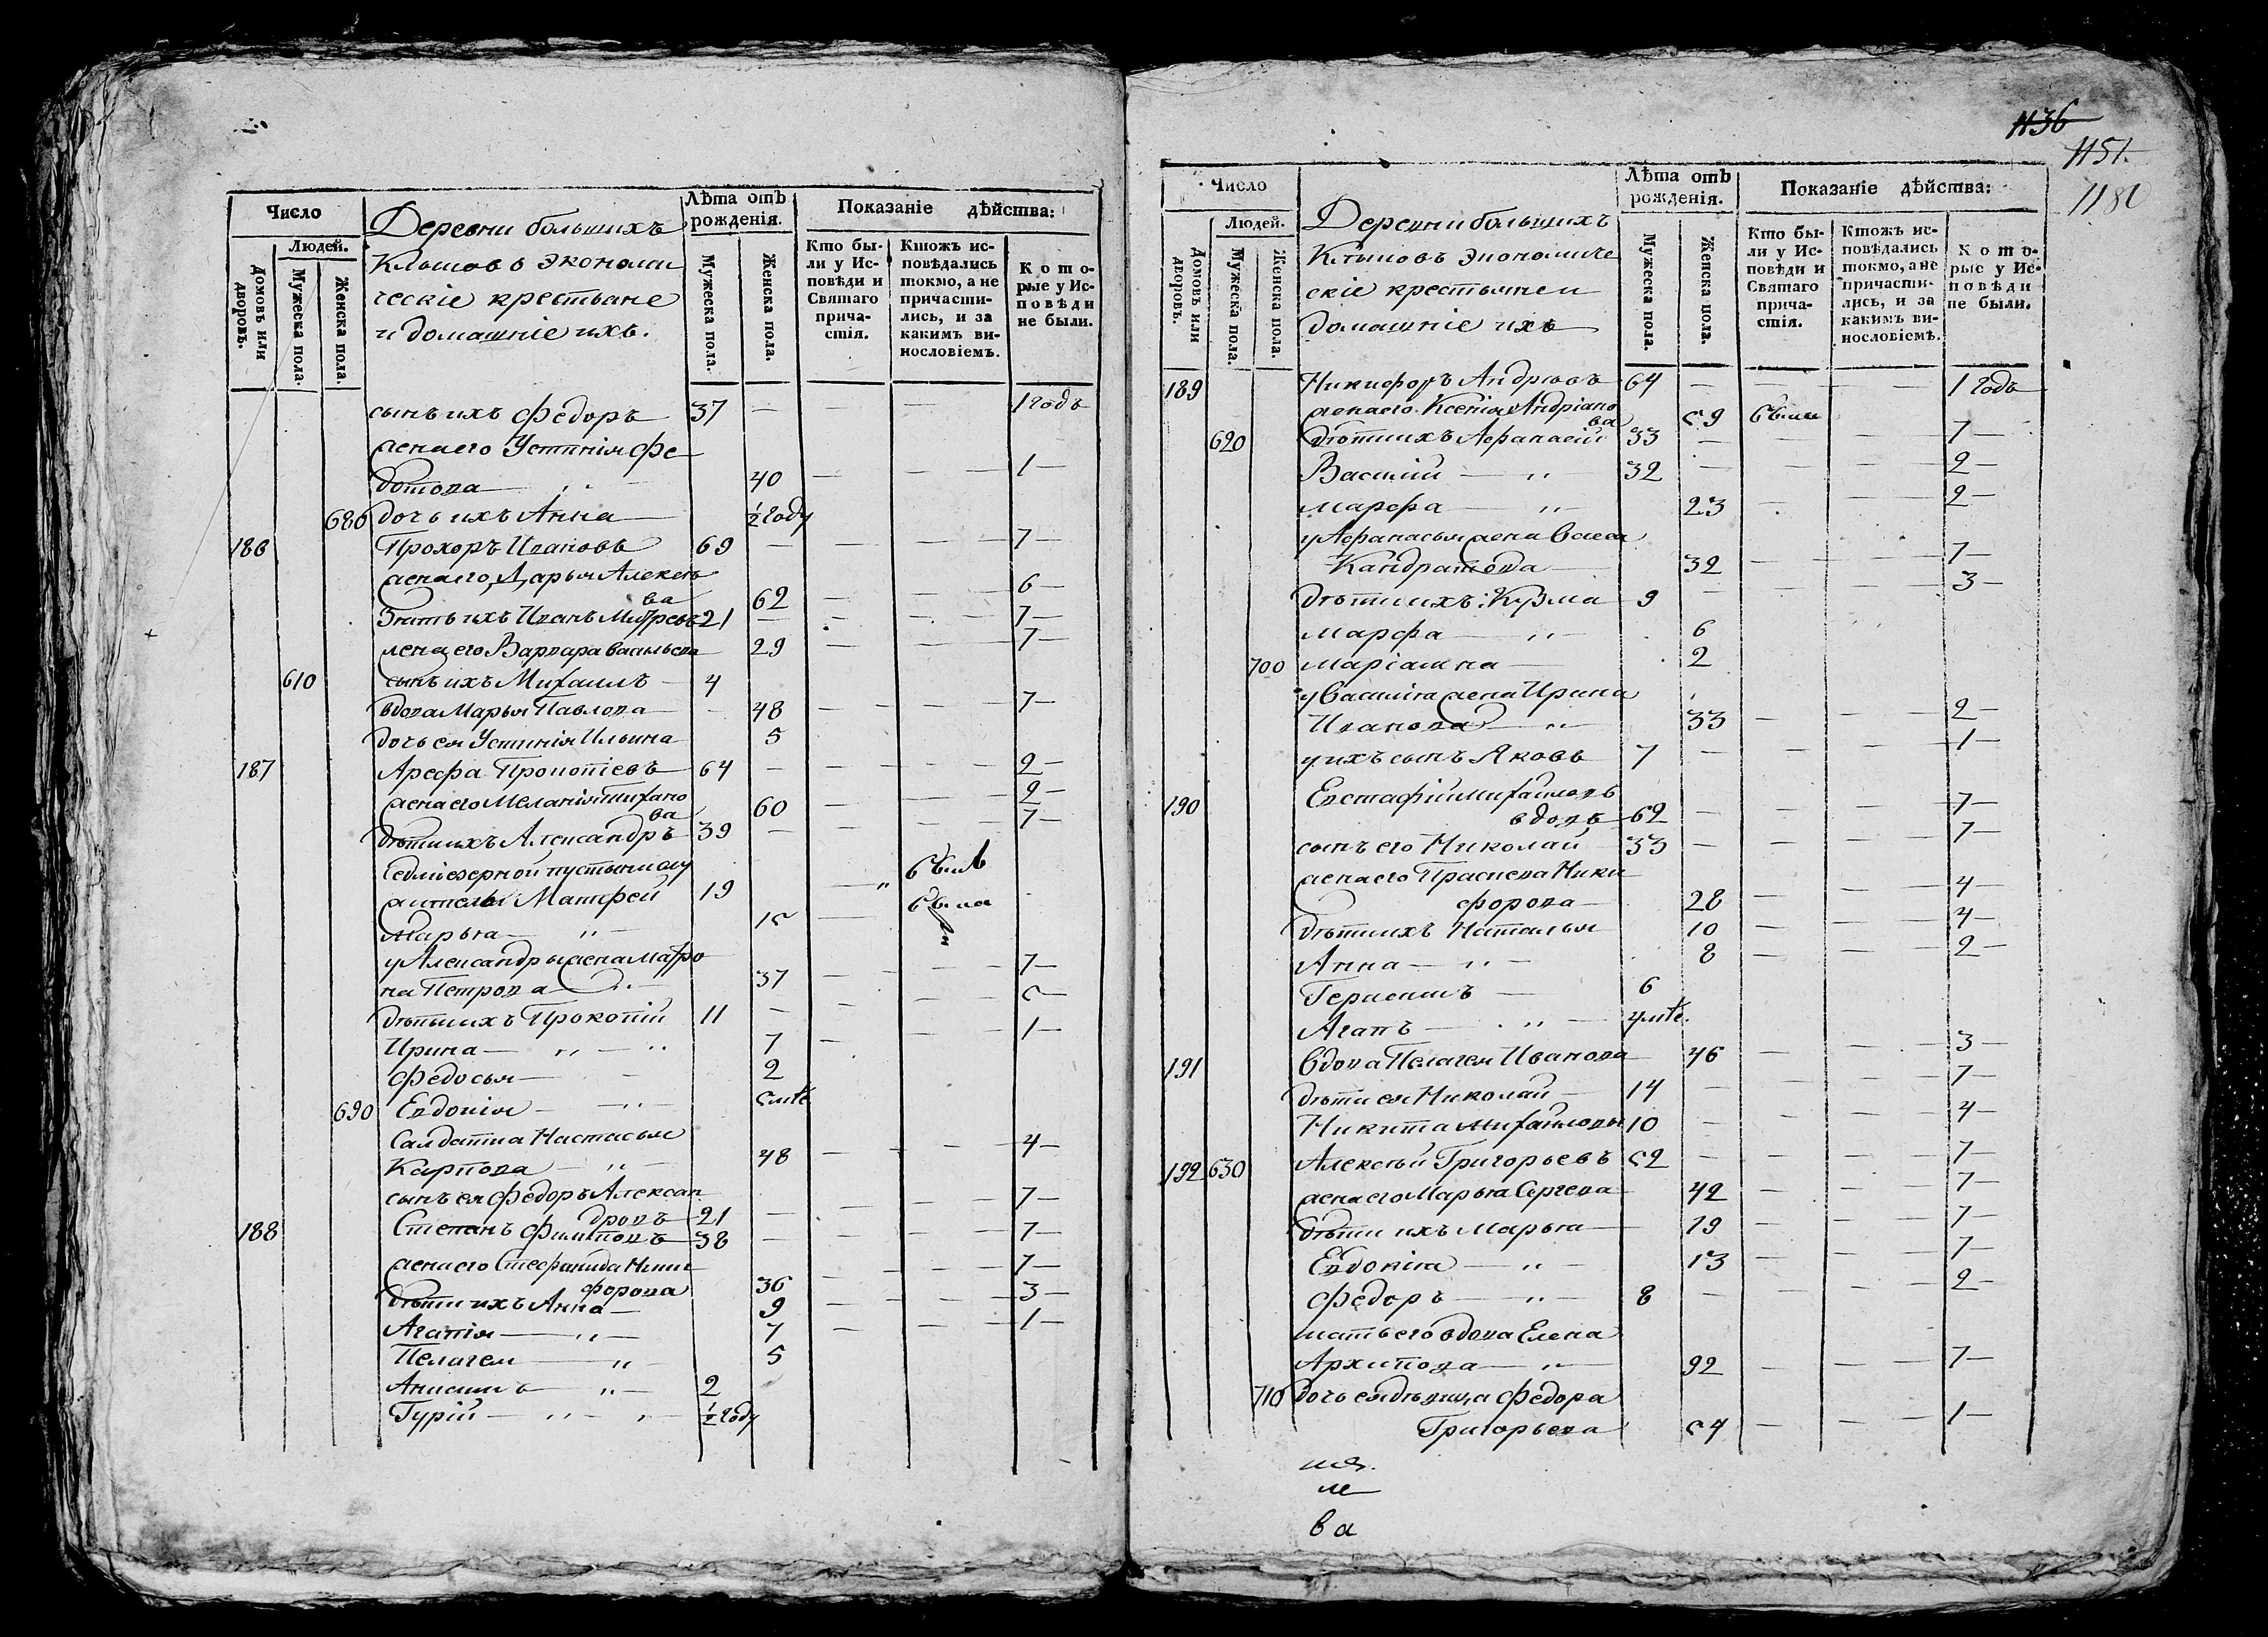 Число
Людей.
Домовъ или дворовъ.
Мужеска пола.
Женска пола.
Деревни большихъ
Клыковъ экономи
ческіе крестьяне
и домашніе ихъ.
Лѣта отъ рожденія.
Мужеска пола.
Женска пола.
Показаніе дѣйства:
Кто были у Исповѣди и Святаго причастія.
Ктожъ исповѣдались токмо, а не причастились, и за какимъ винословіемъ.
Которые у Исповѣди не были.
сынъ ихъ Федоръ 37 — — — 1 годъ
жена его Устинія Фе
дотова 40 — — — 1 —
686 дочь ихъ Анна — ½ году
186 Прохоръ Ивановъ 69 — — — 7 —
жена его Дарья Алексѣе
ва 62 — — — 6 —
Зять ихъ Иванъ Митревъ 21 — — — 7 —
жена его Варвара Васильева 29 — — — 7 —
610 сынъ ихъ Михаилъ — 4
вдова Марья Павлова — 48 — — — 7 —
дочь ея Устинія Ильина 5
187 Арефа Прокопіевъ — 64 — — — 2 —
жена его Меланія Тихано
ва 60 — — — 2 —
дѣти ихъ Александръ — 39 — — — 7 —
Седміезерной пустыни слу
жители Матфей 19 — былъ
Марья — 15 — была
у Александры жена Матро
на Петрова 37 — — — 7 —
дѣти ихъ Прокопій 11 — — — 5 —
Ирина — 7 — — — 1 —
Федосья — 2
690 Евдокія — 5 мѣ
Салдатка Настасья
Карпова — 48 — — — 4 —
сынъ ея Федоръ Алексан
дровъ — 21 — — — 7 —
188 Степанъ Филиповъ — 38 — — — 7 —
жена его Стефанида Ники
форова 36 — — — 7 —
дѣти ихъ Анна — 9 — — — 3 —
Агапія — 7 — — — 1 —
Пелагея — 5
Анисимъ — 2
Гурій — ½ году
1136
1151.
1180
Число
Людей.
Домовъ или дворовъ.
Мужеска пола.
Женска пола.
Деревни большихъ
Клыковъ экономиче
скіе крестьяне и
домашніе ихъ
Лѣта отъ рожденія.
Мужеска пола.
Женска пола.
Показаніе дѣйства:
Кто были у Исповѣди и Святаго причастія.
Ктожъ исповѣдались токмо, а не причастились, и за какимъ винословіемъ.
Которые у Исповѣди не были.
189 Никифоръ Андрѣевъ 64 — — — 1 годъ
жена его Ксенія Андріано
ва 59 были
620 дѣти ихъ Афанасій 33 — — — 7 —
Василій — 32 — — — 2 —
Марфа — 23 — — — 2 —
у Афанасья жена Васса
Кандратева — 32 — — — 7 —
дѣти ихъ: Кузма 9 — — — 3 —
Марфа — 6
700 Маріамна — 2
у Василія жена Ирина
Иванова — 33 — — — 2 —
у ихъ сынъ Яковъ 7 — — — 1 —
190 Евстафій Михайловъ
вдовъ — 62 — — — 7 —
сынъ его Николай — 33 — — — 7 —
жена его Прасковa Ники
форова — 28 — — — 4 —
дѣти ихъ Наталья 10 — — — 4 —
Анна — 8 — — — 2 —
Герасимъ — 6
Агапъ — 4 мѣ.
191 Вдова Пелагея Иванова 46 — — — 3 —
дѣти ея Николай — 14 — — — 7 —
Никита Михайловы 10 — — — 4 —
192 630 Алексѣй Григорьевъ 52 — — — 7 —
жена его Марья Сергева 42 — — — 7 —
дѣти ихъ Марья — 19 — — — 7 —
Евдокія — 13 — — — 7 —
Федоръ — 8 — — — 2 —
мать его вдова Елена
Архипова — 92 — — — 7 —
710 дочь ея дѣвица Федора
Григорьева 54 — — — 1 —
ва